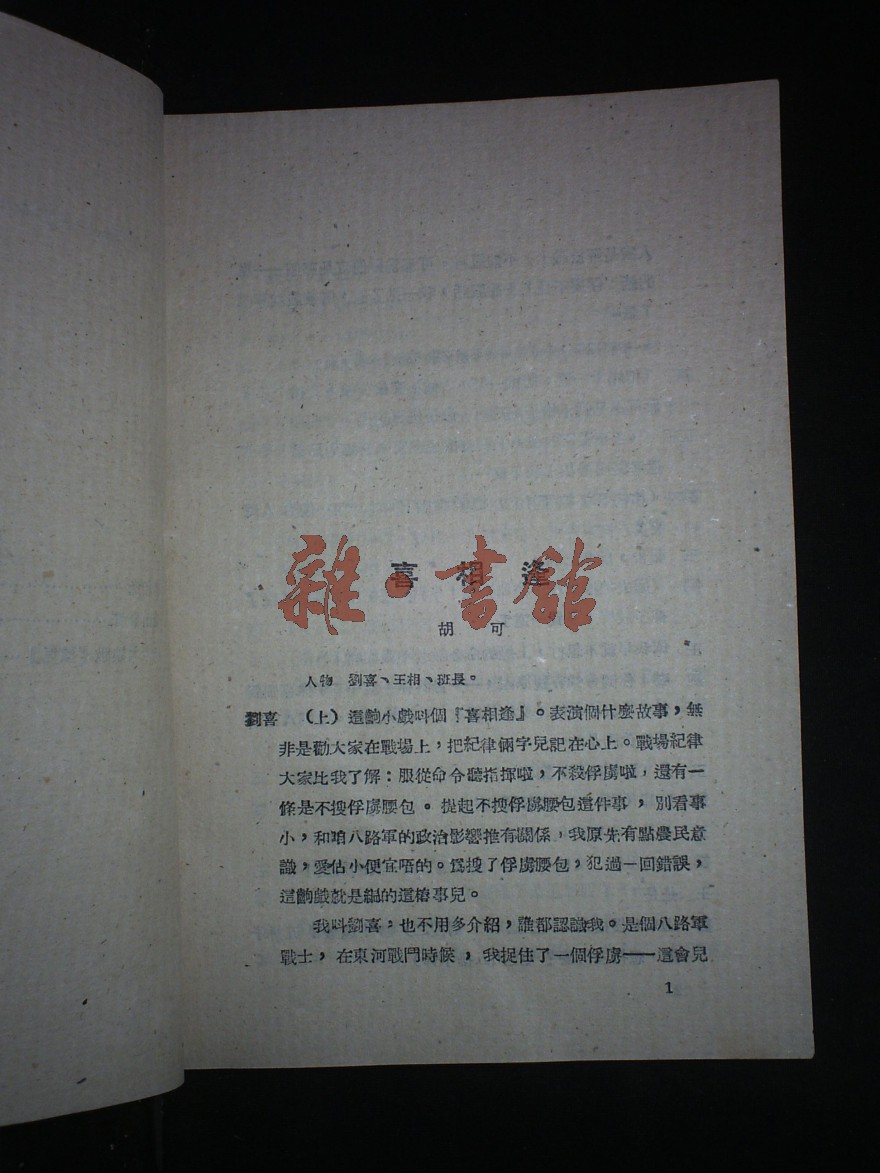 喜相逢
雜·書館
胡可
人物 劉喜、王相、班長。
劉喜 (上)這齣小戲叫個『喜相逢』。表演個什麼故事,無
非是勸大家在戰場上,把紀律倆字兒記在心上。戰場紀律
大家比我了解:服從命令聽指揮啦,不殺俘虜啦,還有一
條是不搜俘虜腰包。提起不搜俘虜腰包這件事,別看事
小,和咱八路軍的政治影響推有關係,我原先有點農民意
識,愛估小便宜唔的。爲搜了俘虜腰包,犯過一回錯誤,
這齣戲就是編的這樁事兒。
我叫劉喜,也不用多介紹,誰都認識我。是個八路軍
戰士,在東河戰鬥時候,我捉住了一個俘虜——這會兒
1